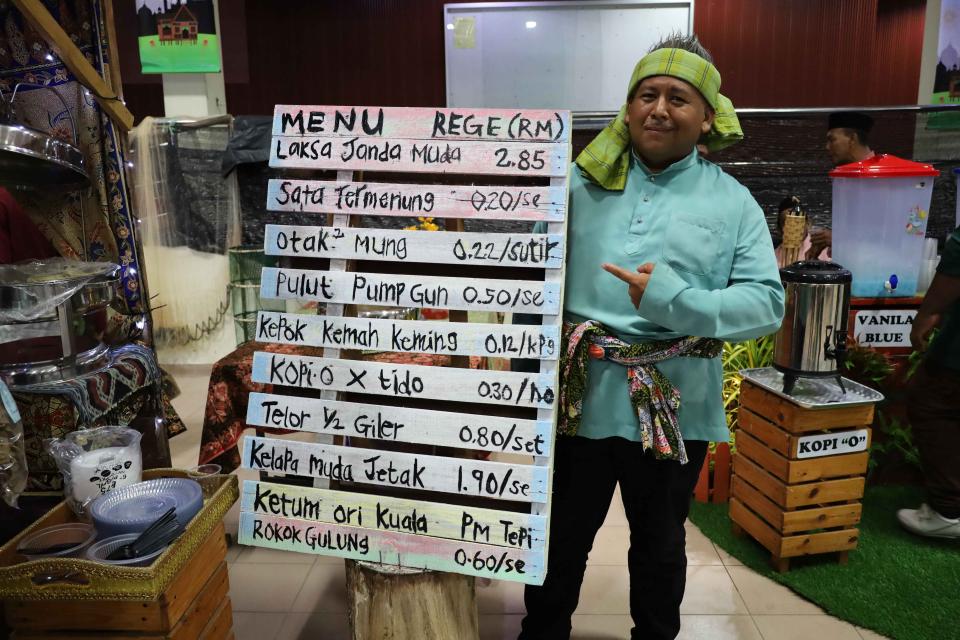 MENU REGE (RM)
Laksa Janda Muda 2.85
Sata Termenung 0.20/se
Otak² Mung 0.22/sutir
Pulut Pump Gun 0.50/se
Kepok Kemah Keming 0.12/kpg
Kopi.O X tido 0.30/
Telor ½ Giler 0.80/set
Kelapa Muda Jetak 1.90/se
Ketum Ori Kuala PM Tepi
ROKOK GULUNG 0.60/se
VANILA
(BLUE
KOPI "O"